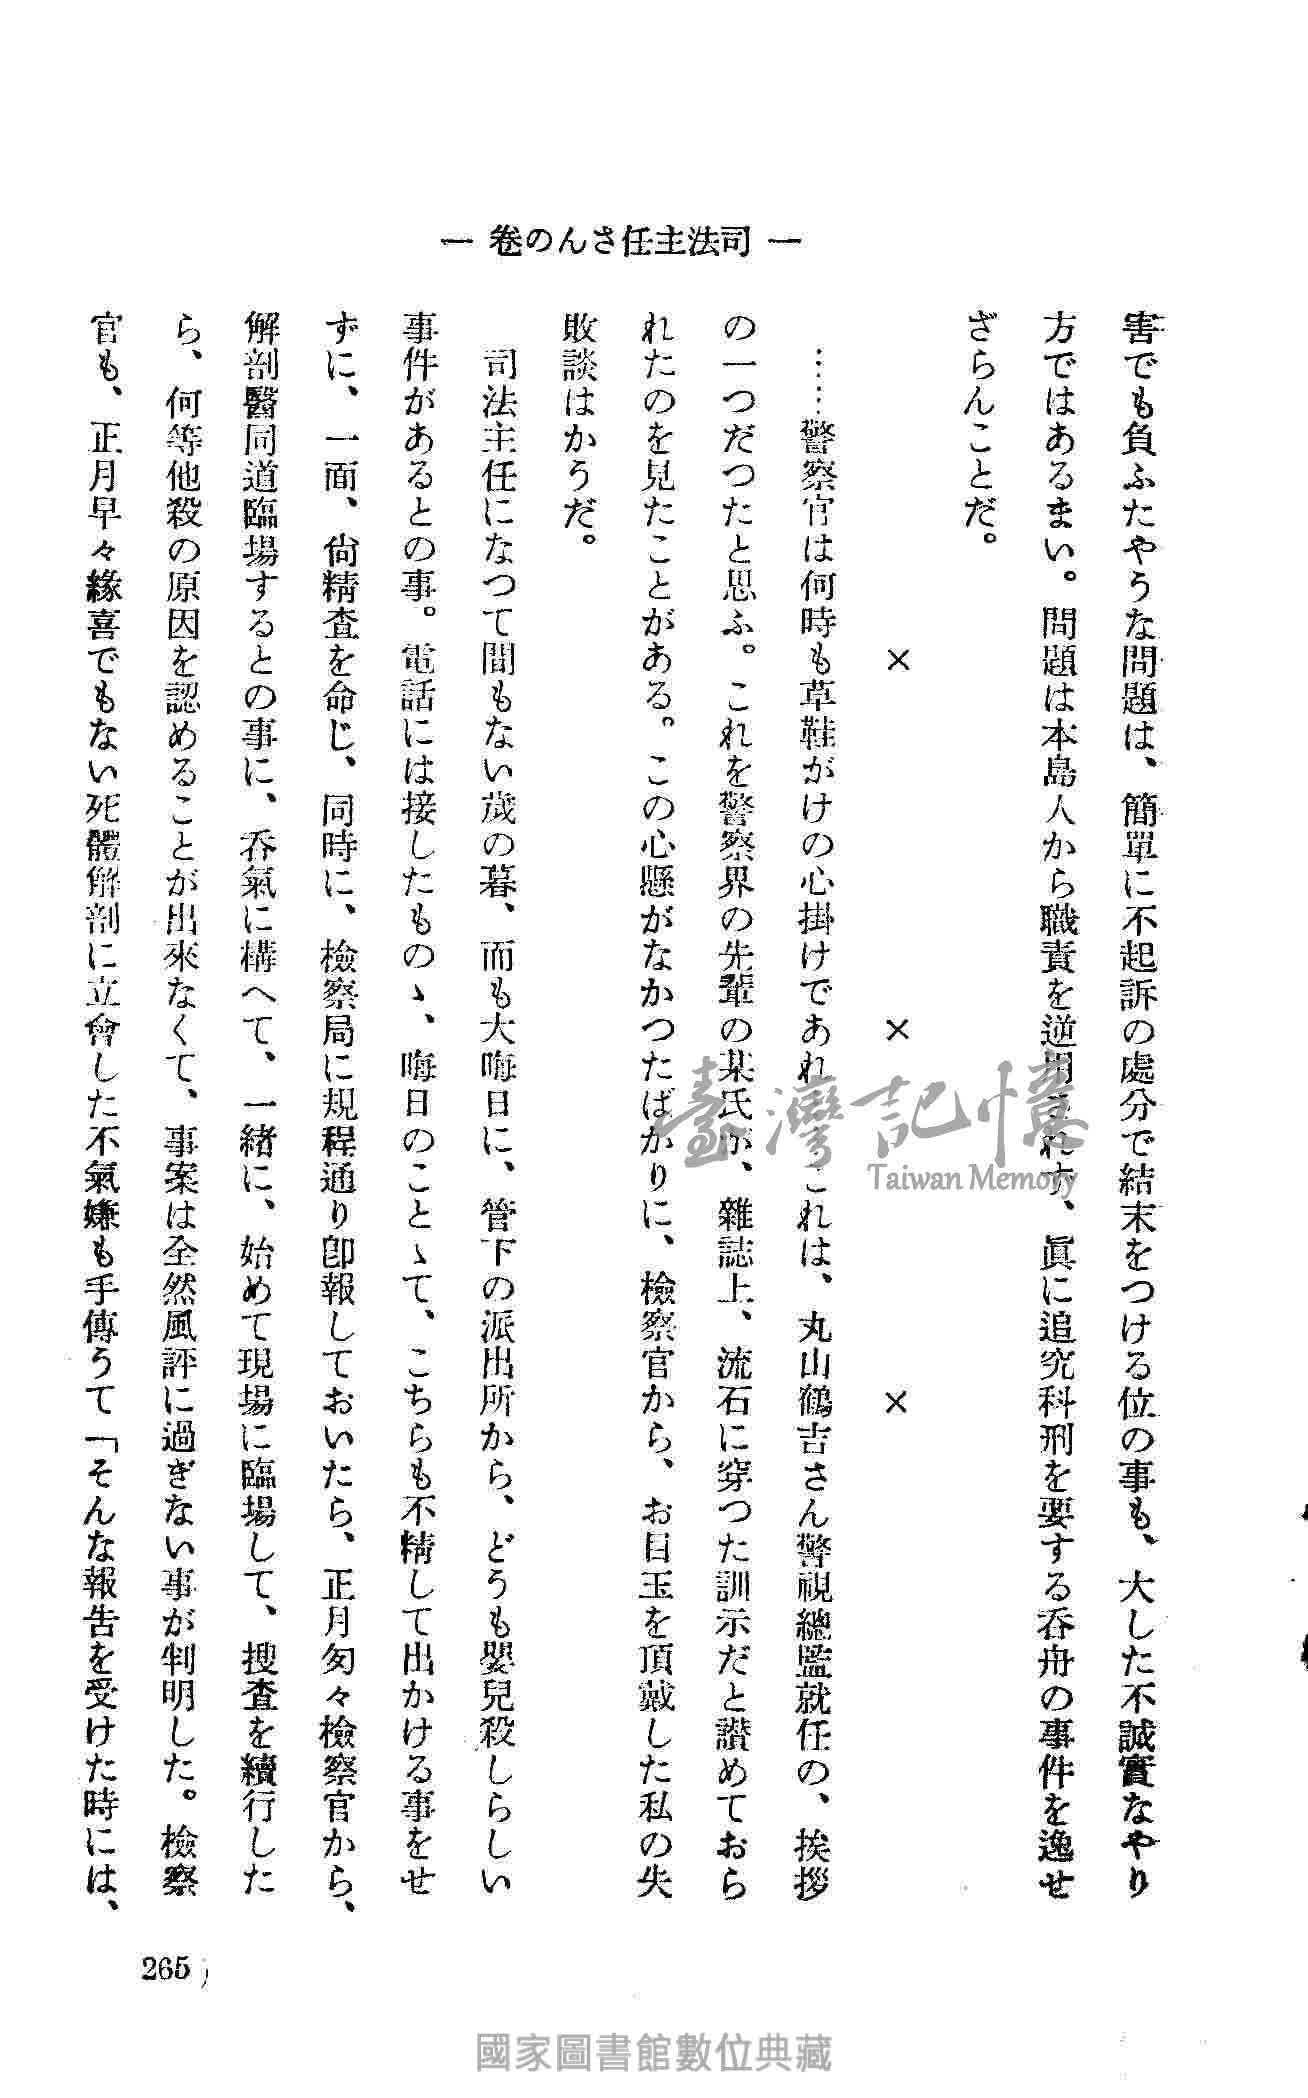 — 司法主任さんの巻 —
害でも負ふたやうな問題は、簡單に不起訴の處分で結末をつける位の事も、大した不誠實なやり
方ではあるまい。問題は本島人から職責を逆用されず、眞に追究科刑を要する呑舟の事件を逸せ
ざらんことだ。
× × ×
……警察官は何時も草鞋がけの心掛けであれ これは、丸山鶴吉さん警視總監就任の、挨拶
の一つだつたと思ふ。これを警察界の先輩の某氏が、雜誌上、流石に穿つた訓示だと讃めておら
れたのを見たことがある。この心懸がなかつたばかりに、檢察官から、お目玉を頂戴した私の失
敗談はかうだ。
司法主任になつて間もない歳の暮、而も大晦日に、管下の派出所から、どうも嬰兒殺しらしい
事件があるとの事。電話には接したものゝ、晦日のことゝて、こちらも不精して出かける事をせ
ずに、一面、尙精査を命じ、同時に、檢察局に規程通り卽報しておいたら、正月匆々檢察官から、
解剖醫同道臨場するとの事に、呑氣に構へて、一緒に、始めて現場に臨場して、搜査を續行した
ら、何等他殺の原因を認めることが出來なくて、事案は全然風評に過ぎない事が判明した。檢察
官も、正月早々緣喜でもない死體解剖に立會した不氣嫌も手傳うて「そんな報告を受けた時には、
265
臺灣記憶
Taiwan Memory
國家圖書館數位典藏